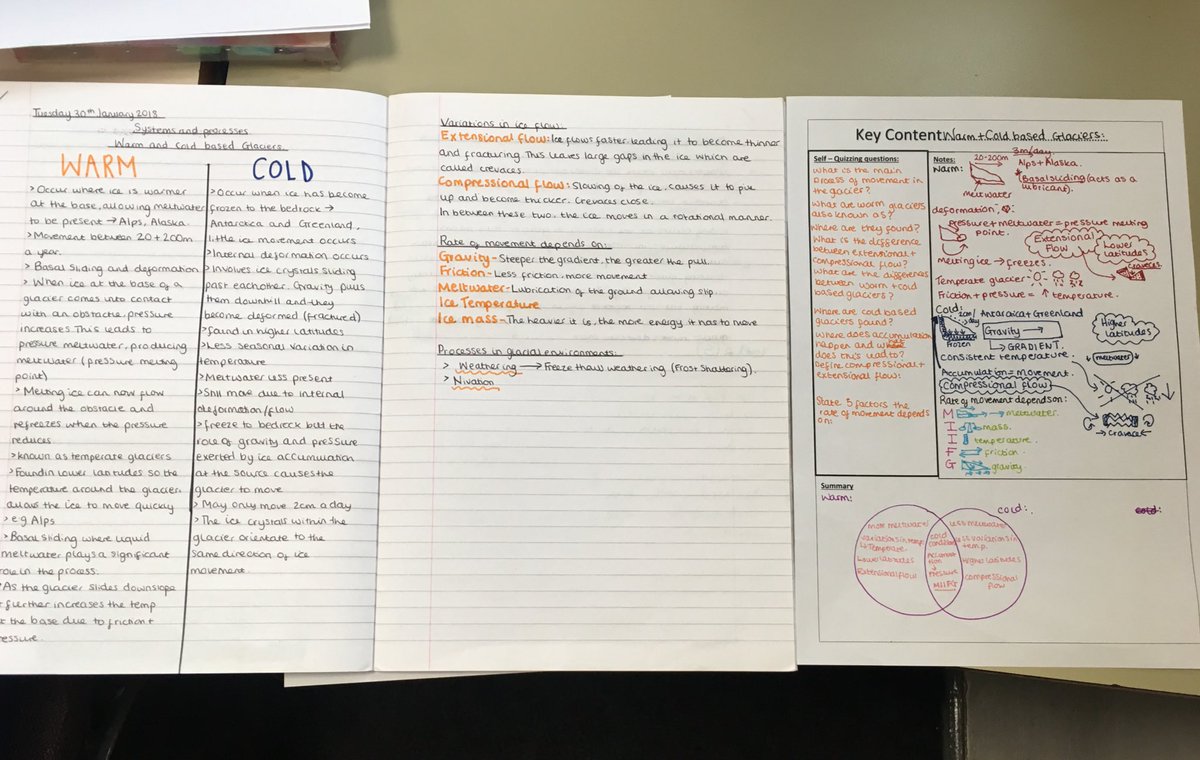 Tuesday 30th January 2018
Systems and processes
Warm and Cold based Glaciers
WARM
> Occur where ice is warmer
at the base, allowing meltwater
to be present → Alps, Alaska.
> Movement between 20+200m
a year.
> Basal sliding and deformation
> When ice at the base of a
glacier comes into contact
with an obstacle, pressure
increases. This leads to
pressure meltwater, producing
meltwater (pressure melting
point)
> Melting ice can now flow
around the obstacle and
refreezes when the pressure
reduces
> known as temperate glaciers
> Found in lower latitudes so the
temperature around the glacier
allows the ice to move quickly
> e.g Alps
> Basal sliding where liquid
meltwater plays a significant
role in the process.
As the glacier slides downslope
it further increases the temp
at the base due to friction +
pressure.
COLD
> Occur when ice has become
frozen to the bedrock →
Antarctica and Greenland,
1. the ice movement occurs
> Internal deformation occurs
> Involves ice crystals sliding
past eachother. Gravity pulls
them downhill and they
become deformed (fractured)
> found in higher latitudes
> Less seasonal variation in
temperature
> Meltwater less present
> Still move due to internal
deformation/flow
> freeze to bedrock but the
role of gravity and pressure
exerted by ice accumulation
at the source causes the
glacier to move
> May only move 2cm a day
> The ice crystals within the
glacier orientate to the
same direction of ice
movement.
Variations in ice flow:
Extensional flow: Ice flows faster leading it to become thinner
and fracturing. This leaves large gaps in the ice which are
called crevaces.
Compressional flow: Slowing of the ice, causes it to pile
up and become thicker. Crevaces close.
In between these two, the ice moves in a rotational manner.
Rate of movement depends on:
Gravity - Steeper the gradient, the greater the pull.
Friction - Less friction, more movement
Meltwater - Lubrication of the ground allowing slip
Ice Temperature
Ice mass - The heavier it is, the more energy it has to move
Processes in glacial environments:
> Weathering → Freeze thaw weathering (Frost Shattering).
> Nivation
Key Content: Warm + Cold based Glaciers:
Self – Quizzing questions:
What is the main
process of movement in
the glacier?
What are warm glaciers
also known as?
Where are they found?
What is the difference
between extensional +
compressional flow?
What are the differences
between warm + cold
based glaciers?
Where are cold based
glaciers found?
Where does accumulation
happen and what
does this lead to?
Define compressional +
extensional flow:
State 5 factors the
rate of movement depends
on:
Notes:
Warm:
20-200m
3m/day
Alps + Alaska.
* Basal sliding (acts as a
lubricant).
meltwater
deformation,
pressure + meltwater = pressure melting
point.
Extensional
Flow
Lower
latitudes
crevaces
Melting ice → freezes.
Temperate glacier
Friction + pressure = ↑ temperature.
Cold:
Antarctica + Greenland
Frozen
Gravity →
→ GRADIENT.
Higher
latitudes
consistent temperature.
↓ meltwater ↓
Accumulation = movement.
Compressional flow
Rate of movement depends on:
M → meltwater.
I mass.
I temperature.
F friction.
G gravity.
→ crevace ←
Summary
Warm:
cold:
cold:
more meltwater
variations in temp
↳ Temperate.
Lower latitudes
Extensional flow
cold
conditions
Accumulation
↓
Pressure
MIIFG
less meltwater
less variations in
temp.
Higher latitudes
compressional
flow